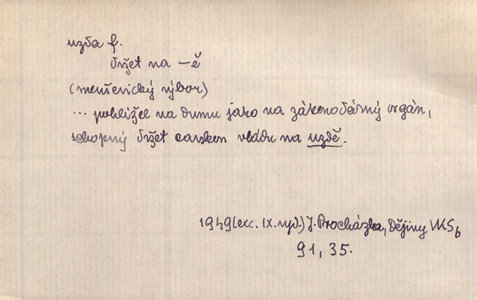 uzda f.
držet na -ě
(menševický výbor)
... pohlížel na dumu jako na zákonodárný orgán,
schopný držet carskou vládu na uzdě.
1949(exc. IX. vyd.) J. Procházka, Dějiny VKSb
91, 35.